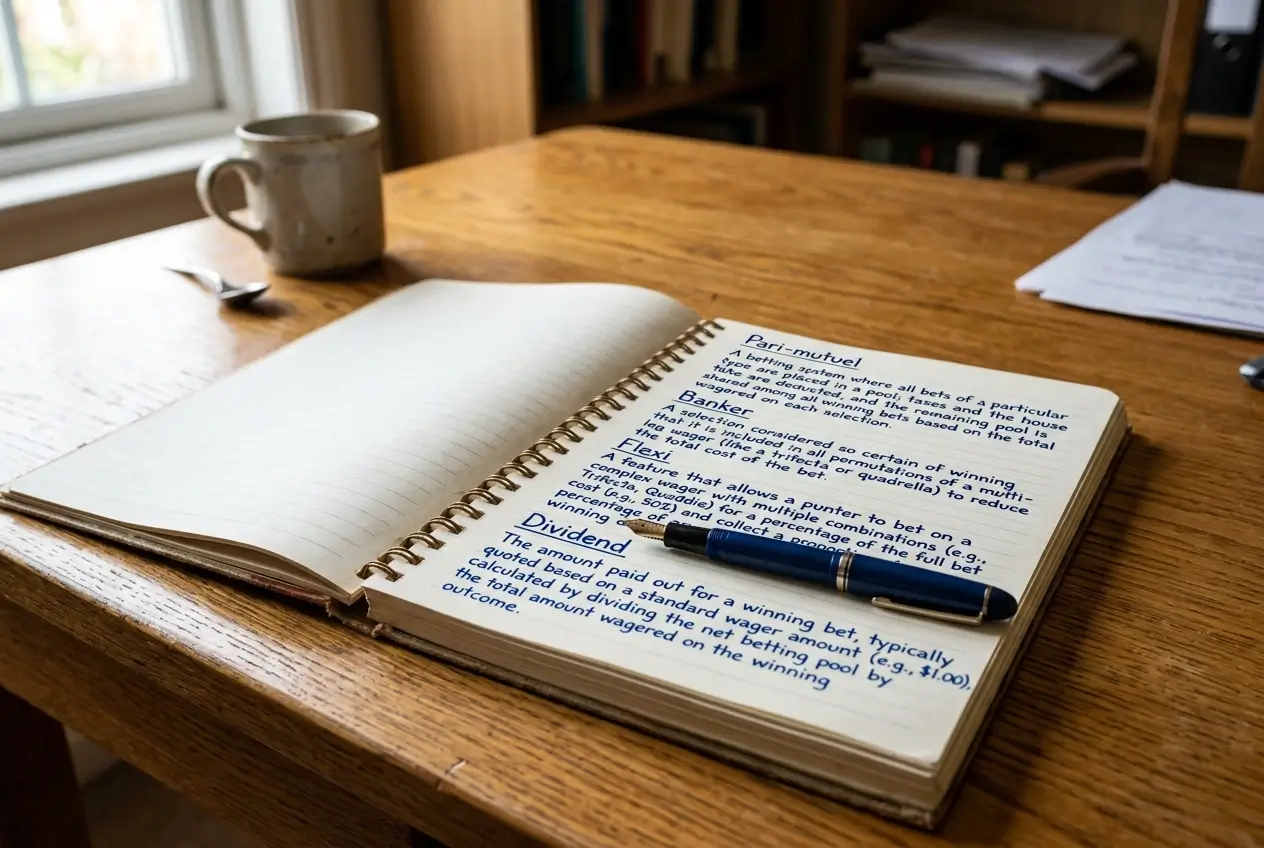 Pari-mutuel
A betting system where all bets of a particular
type are placed in a pool; taxes and the house
take are deducted, and the remaining pool is
shared among all winning bets based on the total
wagered on each selection.
Banker
A selection considered so certain of winning
that it is included in all permutations of a multi-
leg wager (like a trifecta or quadrella) to reduce
the total cost of the bet.
Flexi
A feature that allows a punter to bet on a
complex wager with multiple combinations (e.g.,
Trifecta, Quaddie) for a percentage of the full bet
cost (e.g., 50%) and collect a
percentage of
winning
Dividend
The amount paid out for a winning bet, typically
quoted based on a standard wager amount (e.g., $1.00),
calculated by dividing the net betting pool by
the total amount wagered on the winning
outcome.